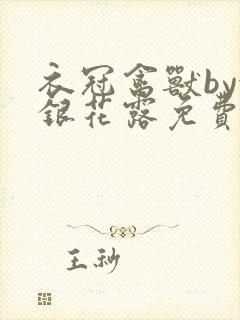 衣冠禽獸by
銀花露免費
王秒